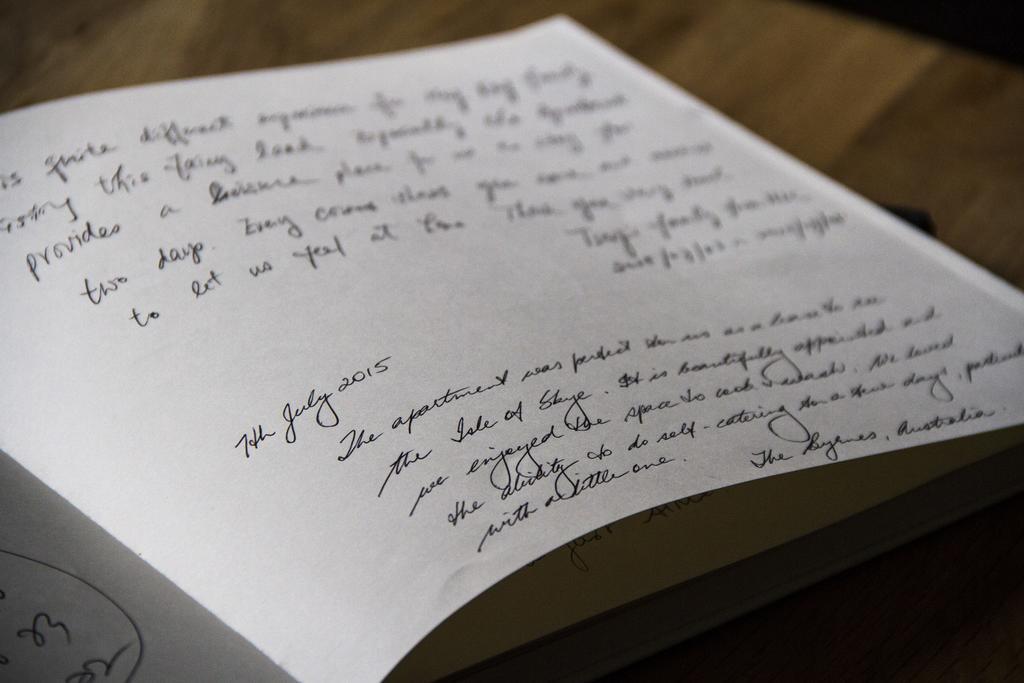 is quite different experience for my family
this fairy land especially the apartment
provides a leisure place for us to stay for
two days. Every corner shows your
to let us feel at home Thank you very much
family from
7th July 2015
The apartment was perfect for us as a base to see
the Isle of Skye. It is beautifully appointed and
we enjoyed the space to cook & wash. We loved
the ability to do self-catering for a few days, particul
with a little one. The Byrnes, Australia.
just